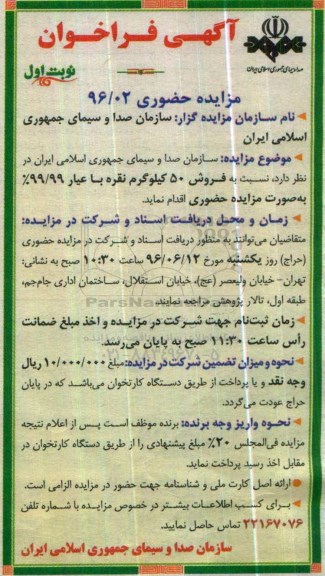 آگهی فراخوان
صدا و سیمای جمهوری اسلامی ایران
نوبت اول
مزایده حضوری ۹۶/۰۲
نام سازمان مزایده گزار: سازمان صدا و سیمای جمهوری
اسلامی ایران
موضوع مزایده: سازمان صدا و سیمای جمهوری اسلامی ایران در
نظر دارد، نسبت به فروش ۵۰ کیلوگرم نقره با عیار ۹۹/۹۹٪
به‌صورت مزایده حضوری اقدام نماید.
زمان و محل دریافت اسناد و شرکت در مزایده:
متقاضیان می‌توانند به منظور دریافت اسناد و شرکت در مزایده حضوری
(حراج) روز یکشنبه مورخ ۹۶/۰۶/۱۲ ساعت ۱۰:۳۰ صبح به نشانی:
تهران- خیابان ولیعصر (عج)، خیابان استقلال، ساختمان اداری جام‌جم،
طبقه اول، تالار پژوهش مراجعه نمایند.
زمان ثبت‌نام جهت شرکت در مزایده و اخذ مبلغ ضمانت
رأس ساعت ۱۱:۳۰ صبح به پایان می‌رسد.
نحوه و میزان تضمین شرکت در مزایده: مبلغ ۱۰/۰۰۰/۰۰۰ ریال
وجه نقد و یا پرداخت از طریق دستگاه کارتخوان می‌باشد که در پایان
حراج عودت می‌گردد.
نحوه واریز وجه برنده: برنده موظف است پس از اعلام نتیجه
مزایده فی‌المجلس ۲۰٪ مبلغ پیشنهادی را از طریق دستگاه کارتخوان در
مقابل اخذ رسید پرداخت نماید.
ارائه اصل کارت ملی و شناسنامه جهت حضور در مزایده الزامی است.
برای کسب اطلاعات بیشتر در خصوص مزایده با شماره تلفن
۲۲۱۶۷۰۷۶ تماس حاصل نمایید.
سازمان صدا و سیمای جمهوری اسلامی ایران